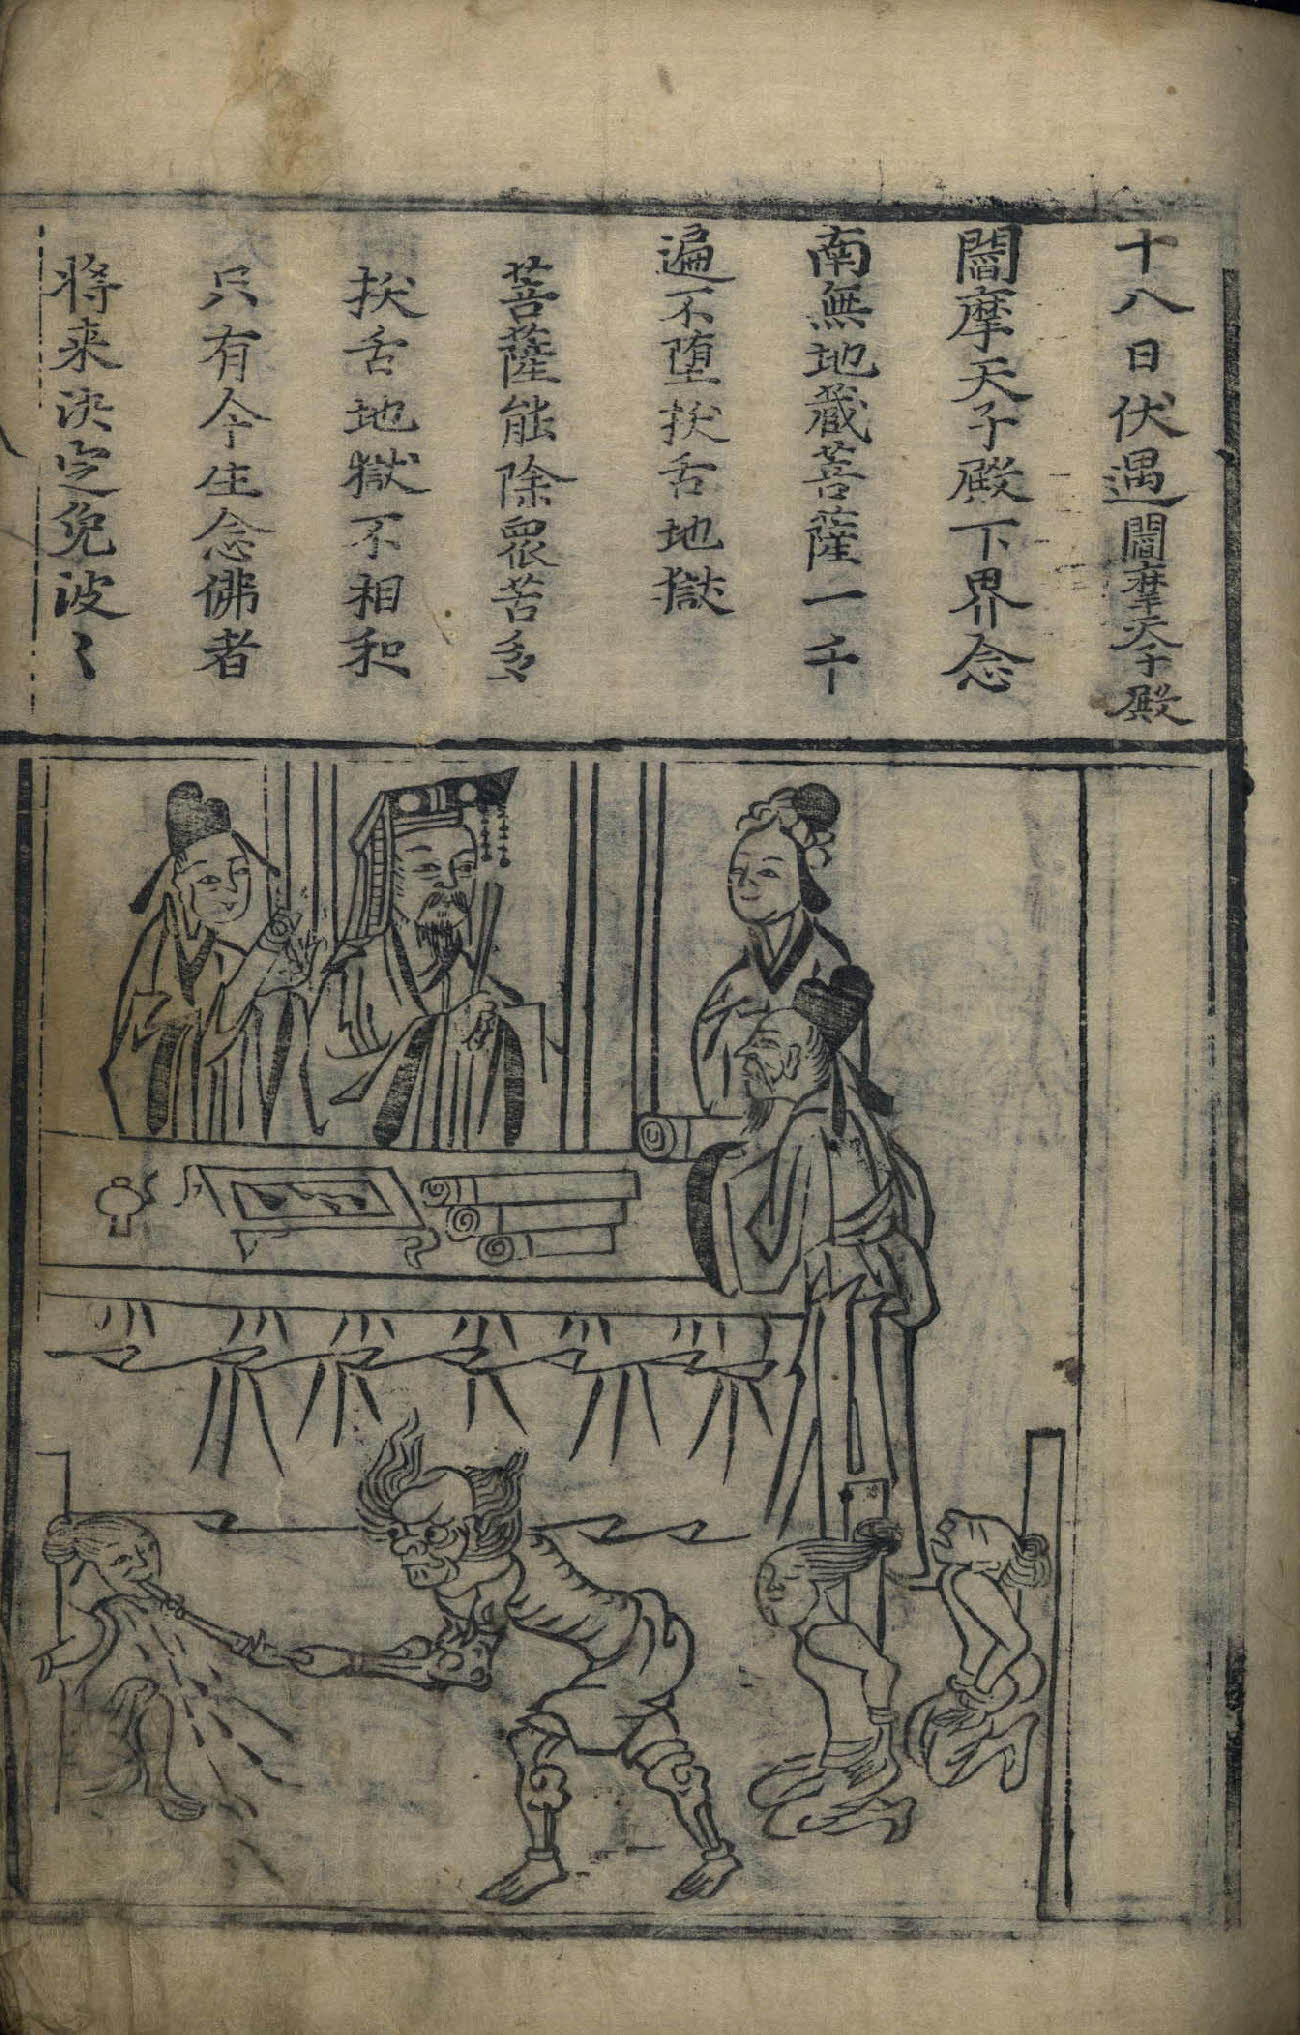 十八日伏遇閻摩天子殿
閻摩天子殿下界念
南無地藏菩薩一千
遍不墮㧞舌地獄
菩薩能除眾苦多
㧞舌地獄不相和
只有今生念佛者
將来決定免波〻